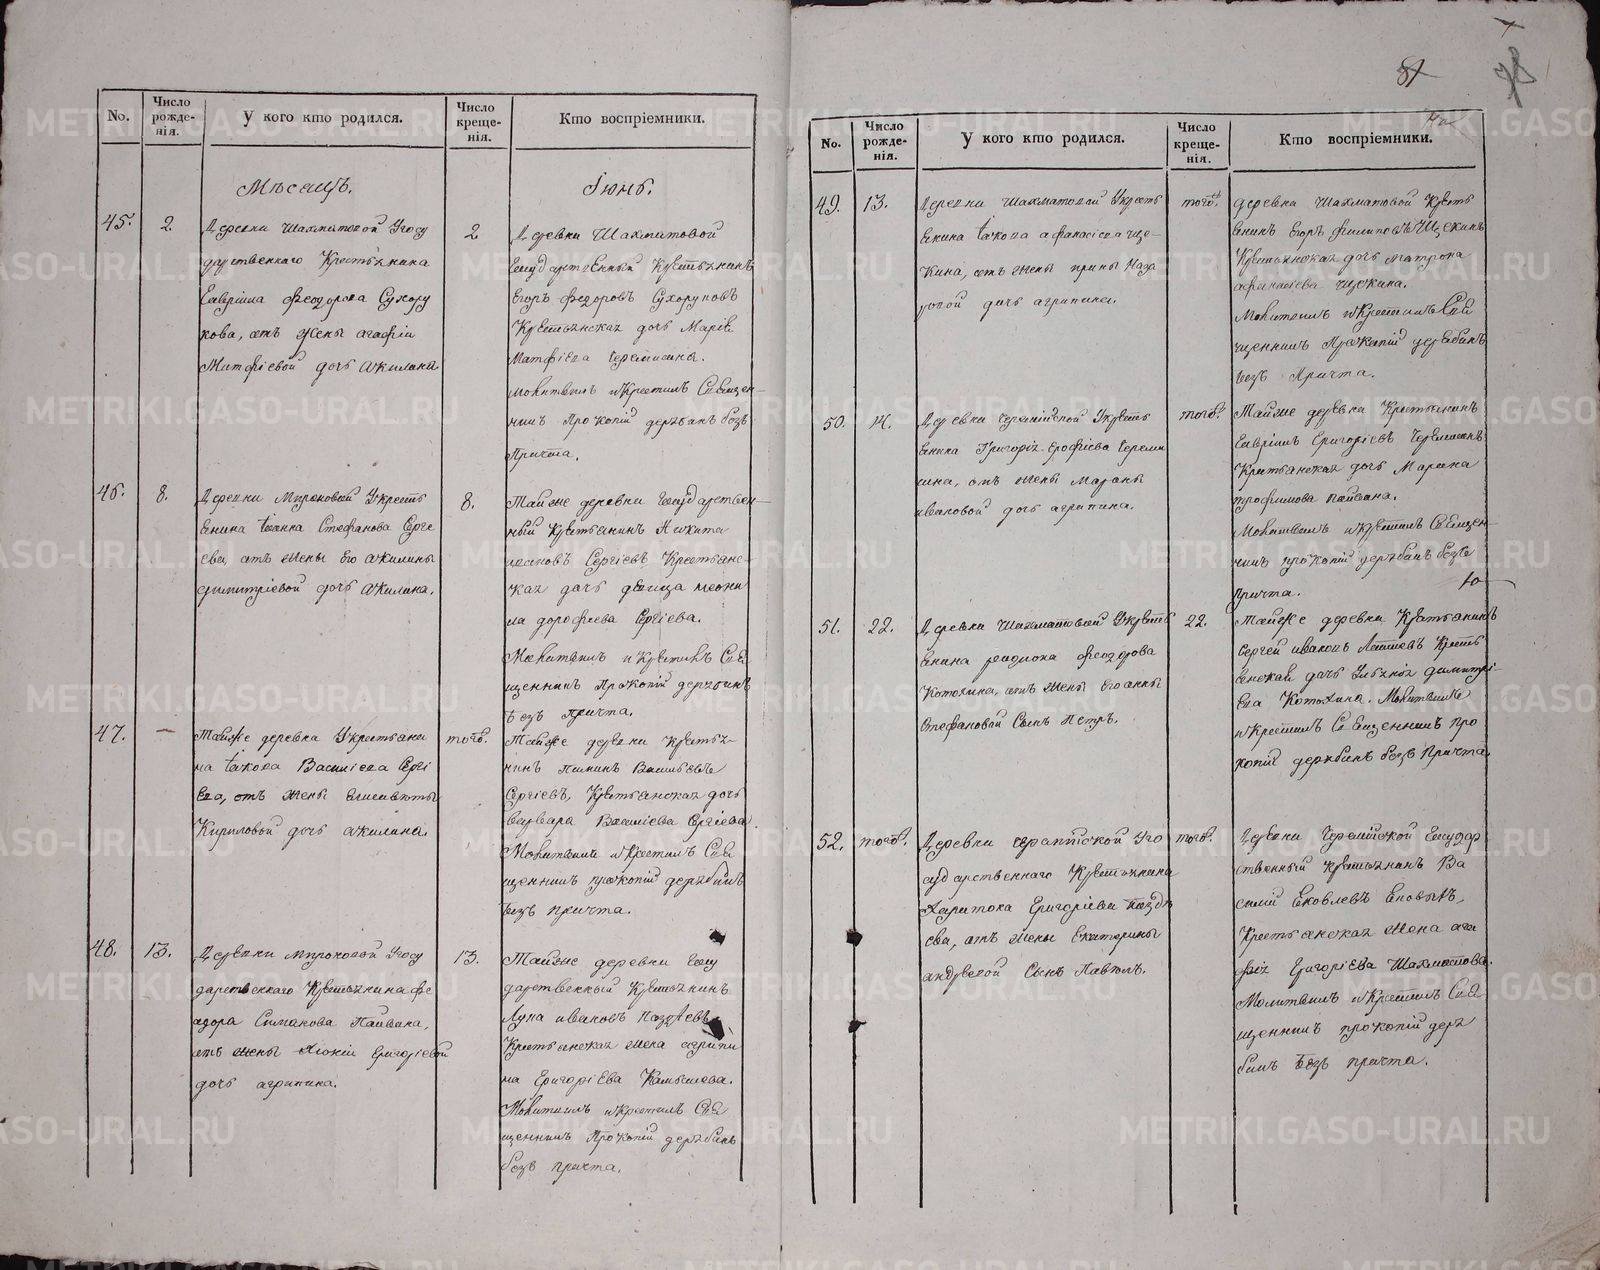 No.
Число рожде-нія.
У кого кто родился.
Число креще-нія.
Кто воспріемники.
Мѣсяцъ.
Іюнь.
45.
2
Деревни Шахматовой Угосу
дарственнаго Крестьянина
Гавріила Феодорова Сухору
кова, отъ жены агафіи
Матфіевой дочь Акилина
2
Деревни Шахматовой
Государственный Крестьянинъ
Егоръ Федоровъ Сухоруковъ
Крестьянская дочь Марія
Матфіева
молитвилъ и Крестилъ Священ-
никъ Прокопій дерябинъ безъ
Причта.
46.
8.
Деревни Мироновой Укресть
янина Іоанна Стефанова Серге
ева, отъ жены Его Акилины
димитріевой дочь Акилина.
8.
Тайже деревни Государствен-
ный Крестьянинъ Никита
Сергіевъ Крестьянс-
кая дочь девица неони
ла дорофиева Сергіева.
Молитвилъ и Крестилъ Свя
щенникъ Прокопій дерябинъ
безъ причта.
47.
—
Тайже деревни Укрестьяни
на Іакова Васильева Сергі
ева, отъ жены Елисаветы
Кириловой дочь Акилина.
тогоʺ.
Тайже деревни Крестья-
нинъ Пиминъ Васильевъ
Сергіевъ, Крестьянская дочь
варвара Василіева Сергіева
Молитвилъ и Крестилъ Свя
щенникъ прокопій дерябинъ
безъ причта.
48.
13.
Деревни Мироновой Угосу
дарственнаго Крестьянина Фе
одора Симанова Пайвина,
отъ жены Хіоніи Григоріевой
дочь агрипина.
13.
Тайже деревни Госу
дарственный Крестьянинъ
Лука ивановъ Поздѣевъ
Крестьянская жена агрипи
на Григоріева Камышева.
Молитвилъ и Крестилъ Свя
щенникъ Прокопій дерябинъ
безъ причта.
81
78
No.
Число рожде-нія.
У кого кто родился.
Число креще-нія.
Кто воспріемники.
49.
13.
Деревни Шахматовой Укресть
янина Іакова афанасіева ще-
кина, отъ жены ирины Наза
ровой дочь агрипина.
тогоʺ
деревни Шахматовой Кресть
янинъ Егоръ филиповъ Щекинъ
Крестьянская дочь матрона
афанасіева щекина.
Молитвилъ и Крестилъ Свя
щенникъ Прокопій дерябинъ
безъ Причта.
50.
14.
Деревни Укресть
янина Григорія Ерофіева Череми
сина, отъ жены Марины
ивановой дочь агрипина.
тогоʺ.
Тайже деревни Крестьянинъ
Гавріилъ Григоріевъ Черемисинъ
Крестьянская дочь Марина
трофимова пайвина.
Молитвилъ и Крестилъ Священ-
никъ прокопій дерябинъ безъ
причта.
51.
22.
Деревни Шахматовой Укресть
янина родіона Феодорова
Котокина, отъ жены Его анны
Стефановой Сынъ Петръ.
22.
Тайже деревни Крестьянинъ
Сергей ивановъ Кресть
янская дочь Ульянія димитрі-
ева Котокина. Молитвилъ
и Крестилъ Священникъ про
копій дерябинъ безъ Причта.
52.
тогоʺ.
Деревни Уго
сударственнаго Крестьянина
Харитона Григоріева Поздѣ
ева, отъ жены Екатерины
андреевой Сынъ Павелъ.
тогоʺ.
Деревни Черемійской Государ
ственный Крестьянинъ Ва
силій Яковлевъ
Крестьянская жена ага
фія Григоріева Шахматова.
Молитвилъ и Крестилъ Свя
щенникъ прокопій деря
бинъ безъ причта.
METRIKI.GASO-URAL.RU